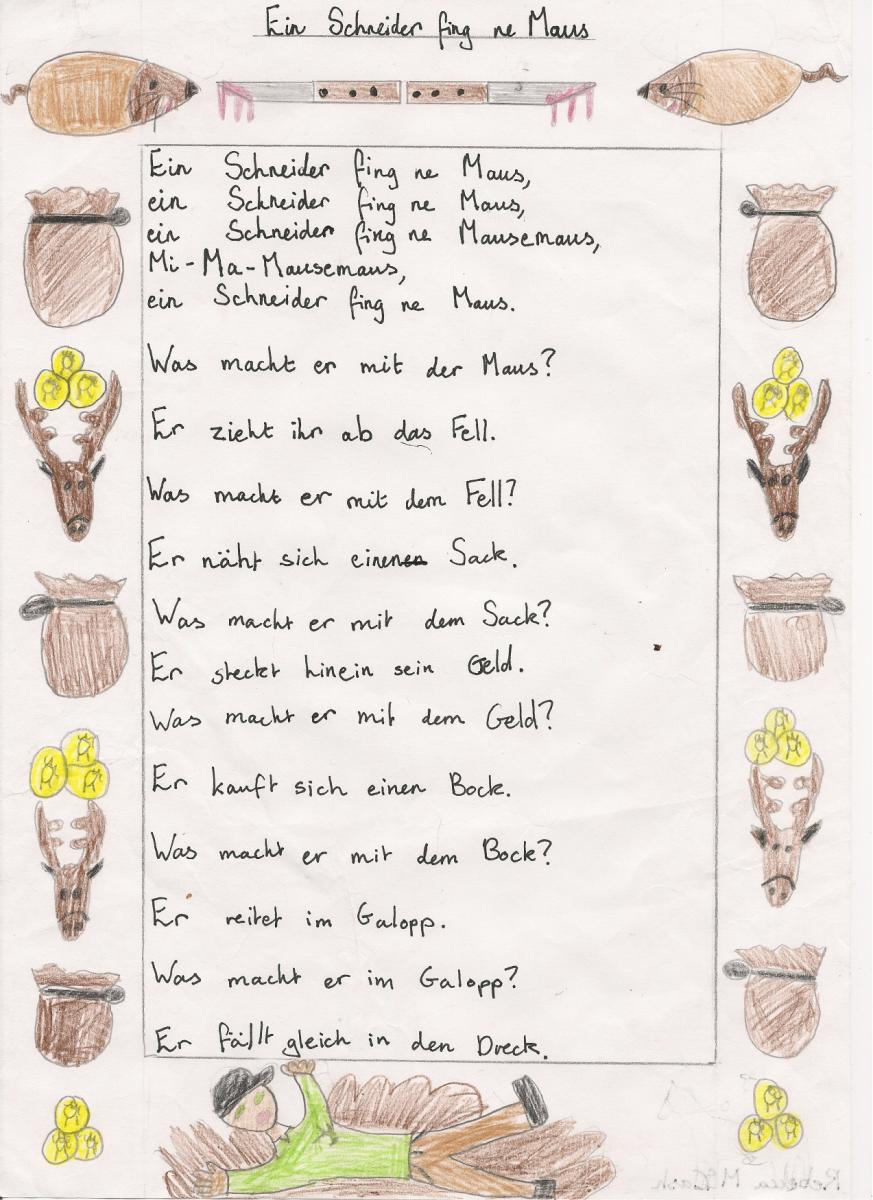 Ein Schneider fing ne Maus
Ein Schneider fing ne Maus,
ein Schneider fing ne Maus,
ein Schneider fing ne Mausemaus,
Mi-Ma-Mausemaus,
ein Schneider fing ne Maus.
Was macht er mit der Maus?
Er zieht ihr ab das Fell.
Was macht er mit dem Fell?
Er näht sich einen Sack.
Was macht er mit dem Sack?
Er steckt hinein sein Geld.
Was macht er mit dem Geld?
Er kauft sich einen Bock.
Was macht er mit dem Bock?
Er reitet im Galopp.
Was macht er im Galopp?
Er fällt gleich in den Dreck.